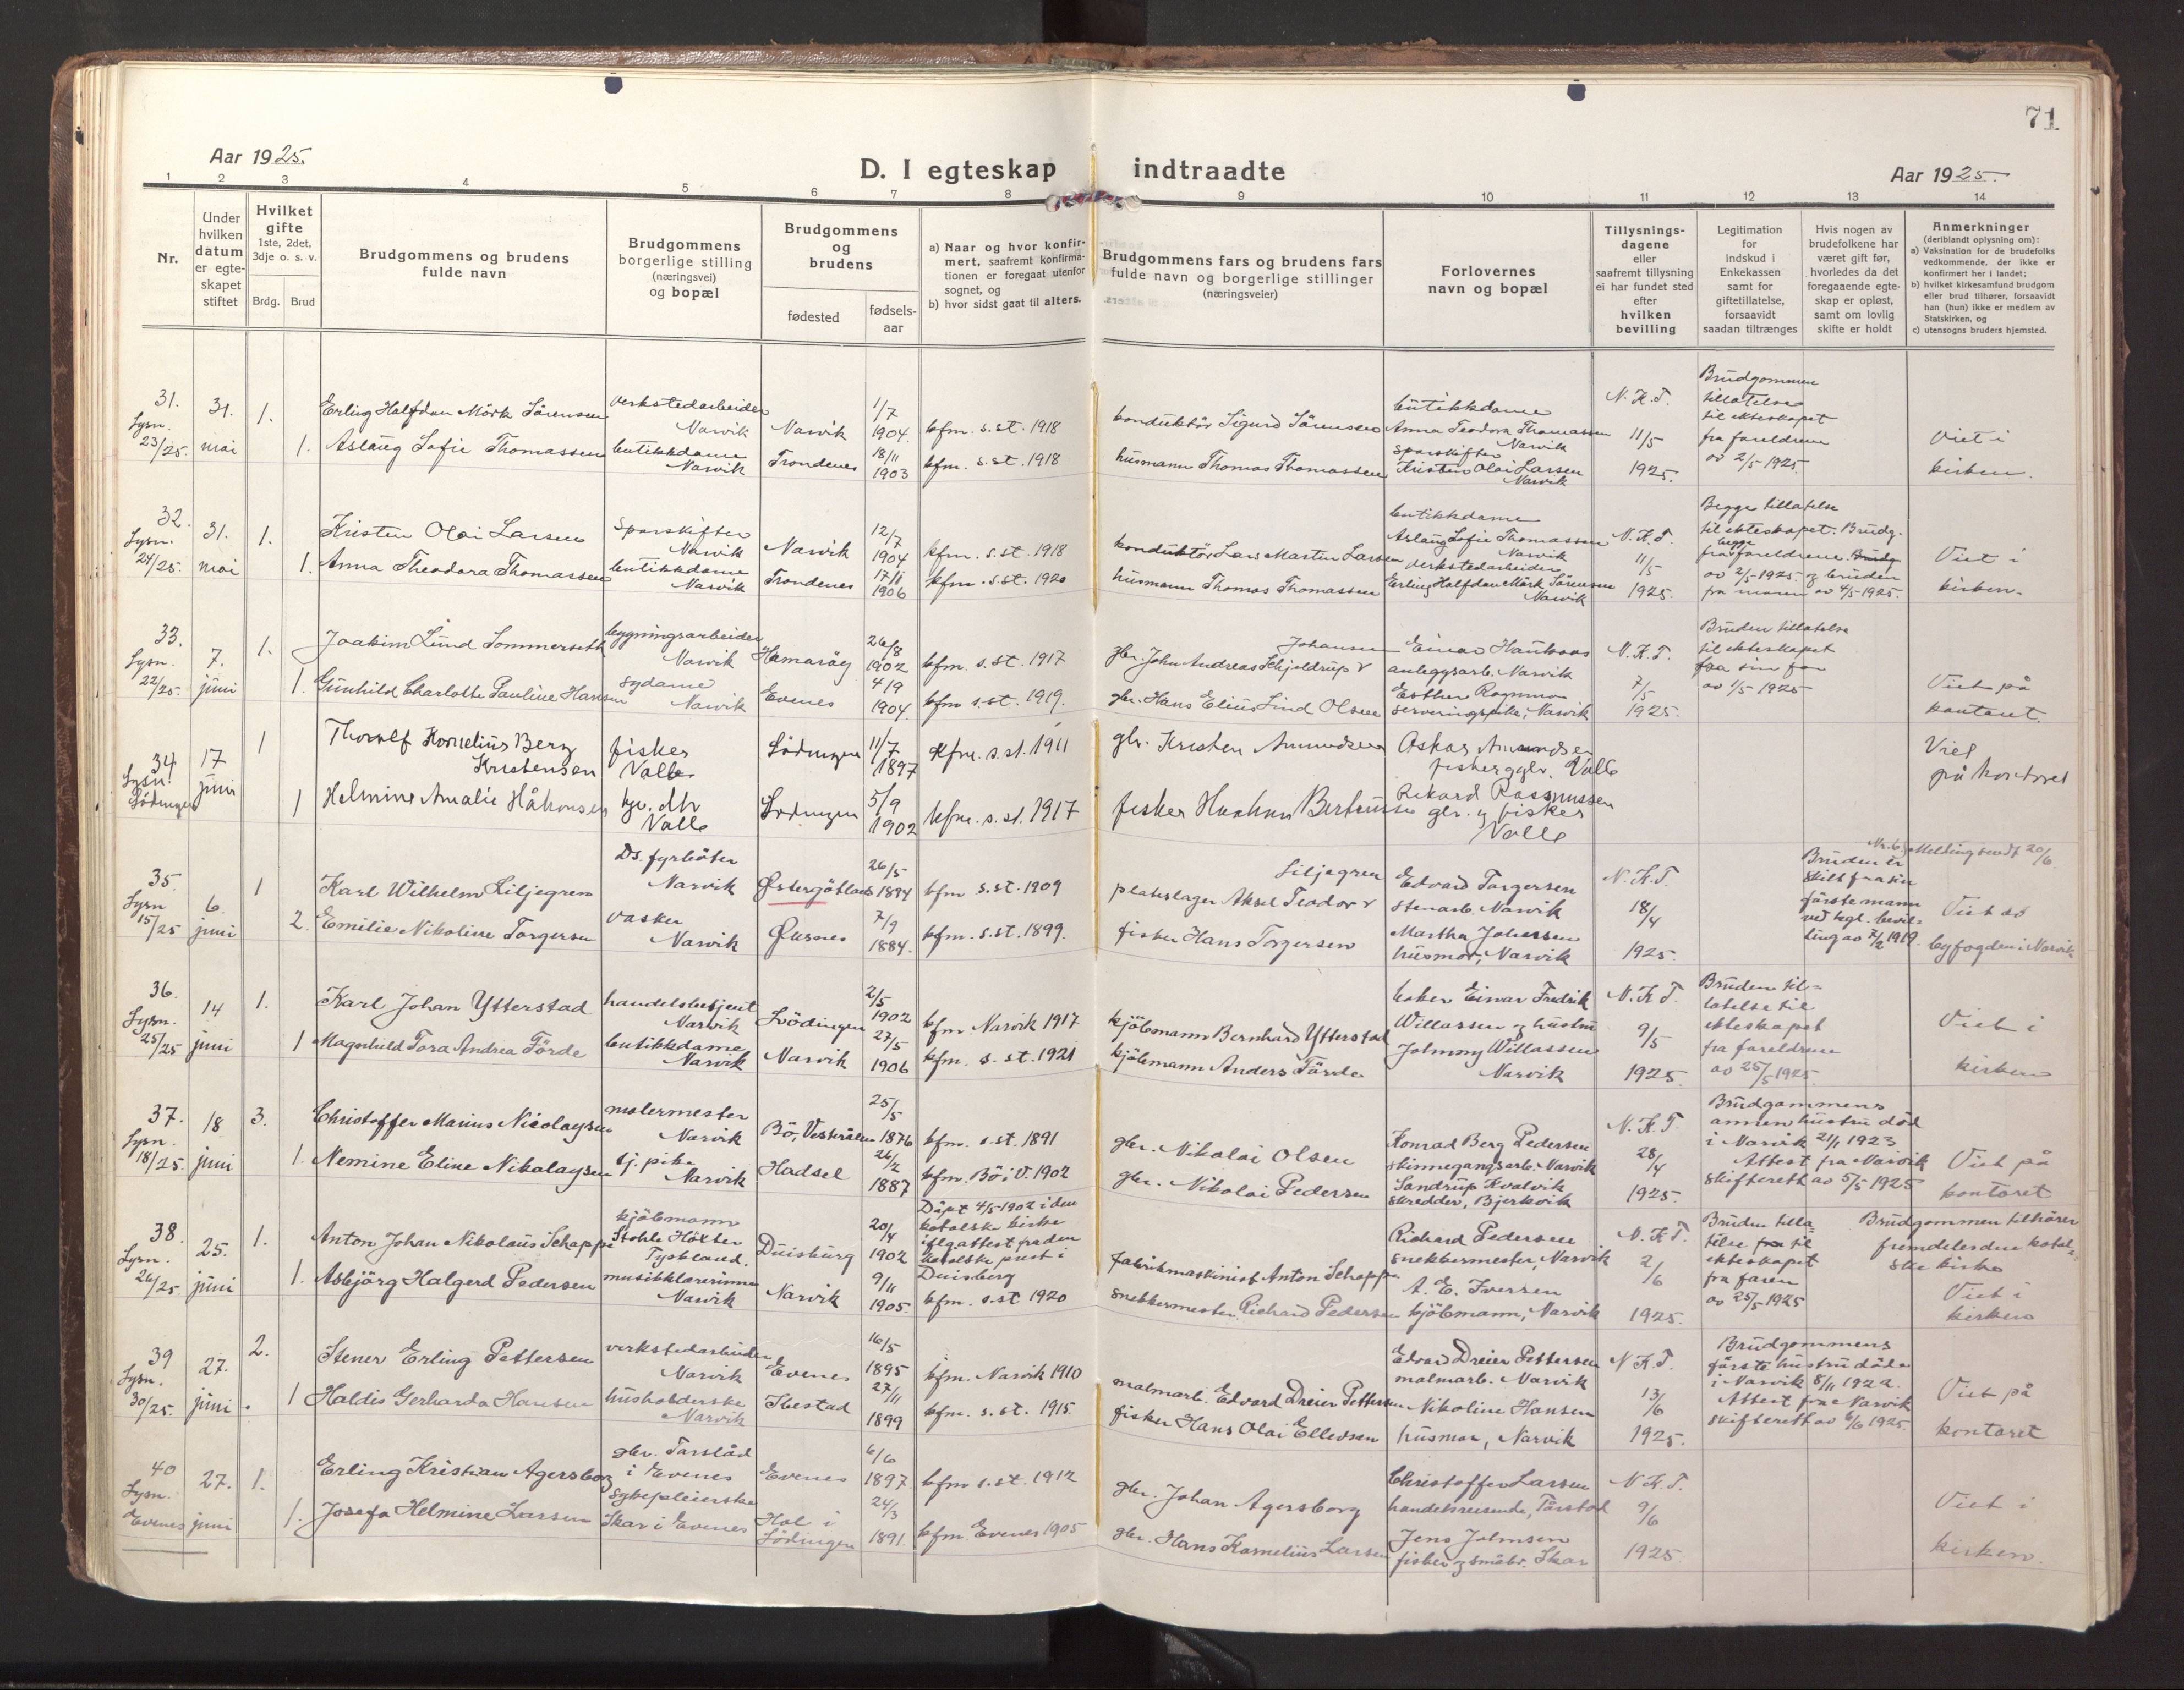 71
Aar 1925.
D. I egteskap indtraadte
Aar 1925.
1 2 3 4 5 6 7 8 9 10 11 12 13 14
Nr.
Under hvilken datum er egte-skapet stiftet
Hvilket gifte
1ste, 2det, 3dje o. s. v.
Brdg. Brud
Brudgommens og brudens fulde navn
Brudgommens borgerlige stilling (næringsvei) og bopæl
Brudgommens og brudens
fødested
fødsels-aar
a) Naar og hvor konfir-mert, saafremt konfirma-tionen er foregaat utenfor sognet, og
b) hvor sidst gaat til alters.
Brudgommens fars og brudens fars fulde navn og borgerlige stillinger (næringsveier)
Forlovernes navn og bopæl
Tillysnings-dagene eller saafremt tillysning ei har fundet sted efter hvilken bevilling
Legitimation for indskud i Enkekassen samt for giftetillatelse, forsaavidt saadan tiltrænges
Hvis nogen av brudefolkene har været gift før, hvorledes da det foregaaende egte-skap er opløst, samt om lovlig skifte er holdt
Anmerkninger
(deriblandt oplysning om):
a) Vaksination for de brudefolks vedkommende, der ikke er konfirmert her i landet;
b) hvilket kirkesamfund brudgom eller brud tilhører, forsaavidt han (hun) ikke er medlem av Statskirken, og
c) utensogns bruders hjemsted.
31. Lysn. 23/25.
31. mai
1. Erling Halfdan Mörk Sörensen
verkstedarbeider Narvik
Narvik
1/7 1904.
kfm. s.st. 1918
konduktör Sigurd Sörensen
butikkdame Anna Teodora Thomassen Narvik
N.K.T. 11/5 1925.
Brudgommen tillatelse til ekteskapet fra foreldrene av 2/5 1925.
Viet i kirken.
1. Aslaug Sofie Thomassen
butikkdame Narvik
Trondenes
18/11 1903
kfm. s.st. 1918
husmann Thomas Thomassen
sporskifter Kristen Olai Larsen Narvik
32. Lysn. 24/25.
31. mai
1. Kristen Olai Larsen
Sporskifter Narvik
Narvik
12/7 1904
kfm. s.st. 1918
konduktör Lars Martin Larsen
butikkdame Aslaug Sofie Thomassen Narvik
N.K.T. 11/5 1925.
Begge tillatelse til ekteskapet. Brudg. fra begge foreldrene av 2/5 1925. og bruden fra moren av 4/5-1925.
Viet i kirken.
1. Anna Theodora Thomassen
butikkdame Narvik
Trondenes
17/11 1906
kfm. s.st. 1920
husmann Thomas Thomassen
verkstedarbeider Erling Halfdan Mörk Sörensen Narvik
33. Lysn. 22/25.
7. juni
1. Joakim Lund Sommerseth
bygningsarbeider Narvik
Hamaröy
26/8 1902
kfm. s.st. 1917
gbr. John Andreas Schjeldrup Johansen
Einar Hauksaas anleggsarb. Narvik
N.K.T. 7/5 1925.
Bruden tillatelse til ekteskapet fra sin far av 1/5 1925
Viet på kontoret.
1. Gunhild Charlotte Pauline Hansen
sydame Narvik
Evenes
4/9 1904.
kfm s.st. 1919.
gbr. Hans Elius Lind Olsen
Esther serveringspike, Narvik
34. Lysn. Lödingen
17 juni
1 Thorolf Kornelius Berg Kristensen
fisker Valle
Lödingen
11/7 1897
kfm. s.st. 1911
gbr. Kristen Amundsen
Oskar Amundsen fisker og gbr. Valle
Viet på kontoret
1 Helmine Amalie Håkonsen
Valle
Lödingen
5/9 1902
kfm. s.st. 1917
fisker
Rikard Rasmussen gbr. og fisker Valle
35. Lysn 15/25
6. juni
1 Karl Wilhelm Liljegren
Ds. fyrböter Narvik
Østergötland
26/5 1894
kfm s.st. 1909
plateslager Aksel Teodor Liljegren
Edvard Torgersen stenarb. Narvik
N.K.T. 18/4 1925.
Nr. 6. Melding sendt 20/6.
Bruden er skilt fra sin förste mann ved kgl. bevilling av 7/2 1919.
Viet av byfogden i Narvik
2. Emilie Nikoline Torgersen
vasker Narvik
Øksnes
7/9 1884.
kfm. s.st. 1899.
fisker Hans Torgersen
Martha husmor, Narvik
36. Lysn. 25/25
14 juni
1. Karl Johan Ytterstad
handelsbetjent Narvik
Lödingen
2/5 1902
kfm Narvik 1917
kjöbmann Bernhard Ytterstad
baker Einar Fredrik Willassen og hustru Johnny Willassen Narvik
N.K.T. 9/5 1925.
Bruden til-latelse til ekteskapet fra foreldrene av 25/5 1925.
Viet i kirken
1 Magnhild Tora Andrea Förde
butikkdame Narvik
Narvik
27/5 1906
kfm. s.st. 1921
kjöbmann Anders Förde
37. Lysn. 18/25.
18 juni
3. Christoffer Marius Nicolaysen
malermester Narvik
Bö, Vesterålen
25/5 1876
kfm. s.st. 1891
gbr. Nikolai Olsen
Konrad Berg Pedersen skinnegangsarb. Narvik
N.K.T. 28/4 1925.
Brudgommens annen hustru död i Narvik 21/1 1923 Attest fra Narvik skifterett av 5/5 1925
Viet på kontoret
1. Nemine Eline Nikolaysen
tj. pike Narvik
Hadsel
26/2 1887
kfm. Bö i V. 1902
gbr. Nikolai Pedersen
Sandrup Kvalvik skredder, Bjerkvik
38. Lysn. 26/25.
25. juni
1. Anton Johan Nikolaus Schappe
kjöbmann Stahle Höxter Tyskland.
Duisburg
20/4 1902
Döpt 4/5 1902 i den katolske kirke iflg. attest fra den katolske prest i Duisburg
fabrikmaskinist Anton Schappe
Richard Pedersen snekkermester, Narvik
N.K.T. 2/6 1925.
Bruden tilla-telse til ekteskapet fra faren av 25/5 1925
Brudgommen tilhörer fremdeles den katol-ske kirke
Viet i kirken
1. Asbjörg Halgerd Pedersen
musikklærerinne Narvik
Narvik
9/11 1905.
kfm. s.st 1920
snekkermester Richard Pedersen
A. E. Iversen kjöbmann, Narvik
39 Lysn. 30/25.
27. juni.
2. Stener Erling Pettersen
verkstedarbeider Narvik
Evenes
16/5 1895
kfm. Narvik 1910
malmarb. Edvard Dreier Pettersen
Edvard Dreier Pettersen malmarb. Narvik
N.K.T. 13/6 1925.
Brudgommens förste hustru döde i Narvik 8/11 1922. Attest fra Narvik skifterett av 6/6 1925.
Viet på kontoret
1 Haldis Gerharda Hansen
husholderske Narvik
Ibestad
27/11 1899
kfm. s.st. 1915.
fisker Hans Olai Elledsen
Nikoline Hansen husmor, Narvik
40 Lysn. Evenes
27. juni
1. Erling Kristian Agersborg
gbr. Tårstad i Evenes
Evenes
6/6 1897
kfm s.st. 1912
gbr. Johan Agersborg
Christoffer Larsen handelsreisende, Tårstad
N.K.T. 9/6 1925
Viet i kirken.
1. Josefa Helmine Larsen
sykepleierske Skar i Evenes
Hol i Lödingen
24/3 1891.
kfm. Evenes 1905
gbr. Hans Kornelius Larsen
Jens Johnsen fisker og småbr. Skar